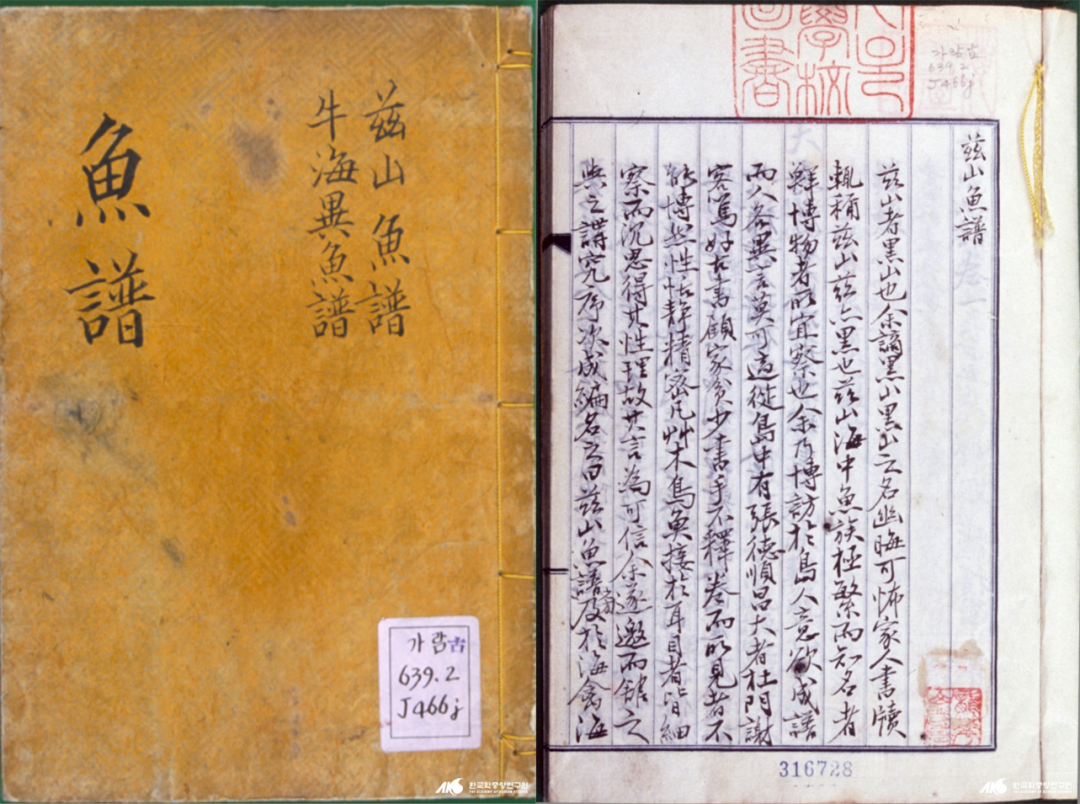 玆山魚譜
牛海異魚譜
魚譜
가람古
639.2
J466j
AKS 한국학중앙연구원
學校
書
가람古
639.2
J466j
玆山魚譜
玆山者黑山也余謫黑山黑山之名幽晦可怖家人書牘
輒稱玆山玆亦黑也玆山海中魚族極繁而知名者
鮮博物者所宜察也余乃博訪於島人意欲成譜
而人各異言莫可適從島中有張德順昌大者杜門謝
客篤好古書顧家貧少書手不釋卷而所見者不
能博然性恬靜精密凡艸木鳥魚接於耳目者皆細
察而沉思得其性理故其言為可信余遂邀而館之
與之講究序次成編名之曰玆山魚譜旁及於海禽海
316728
AKS 한국학중앙연구원